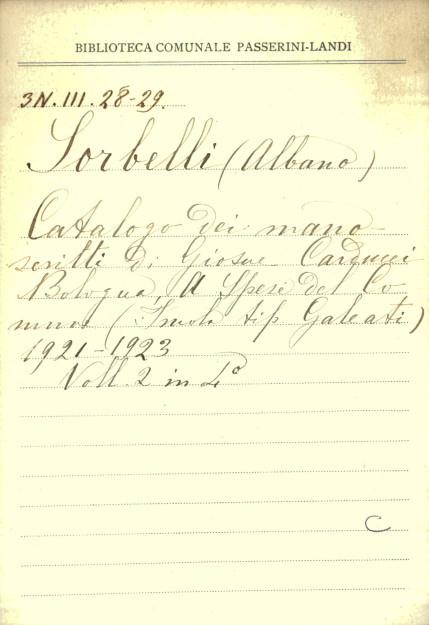 BIBLIOTECA COMUNALE PASSERINI-LANDI
3N. III. 28-29.
Sorbelli (Albano)
Catalogo dei mano-
scritti di Giosue Carducci
Bologna, A Spese del Co-
mune (Imola tip Galeati)
1921-1923
Voll. 2 in 4º
C